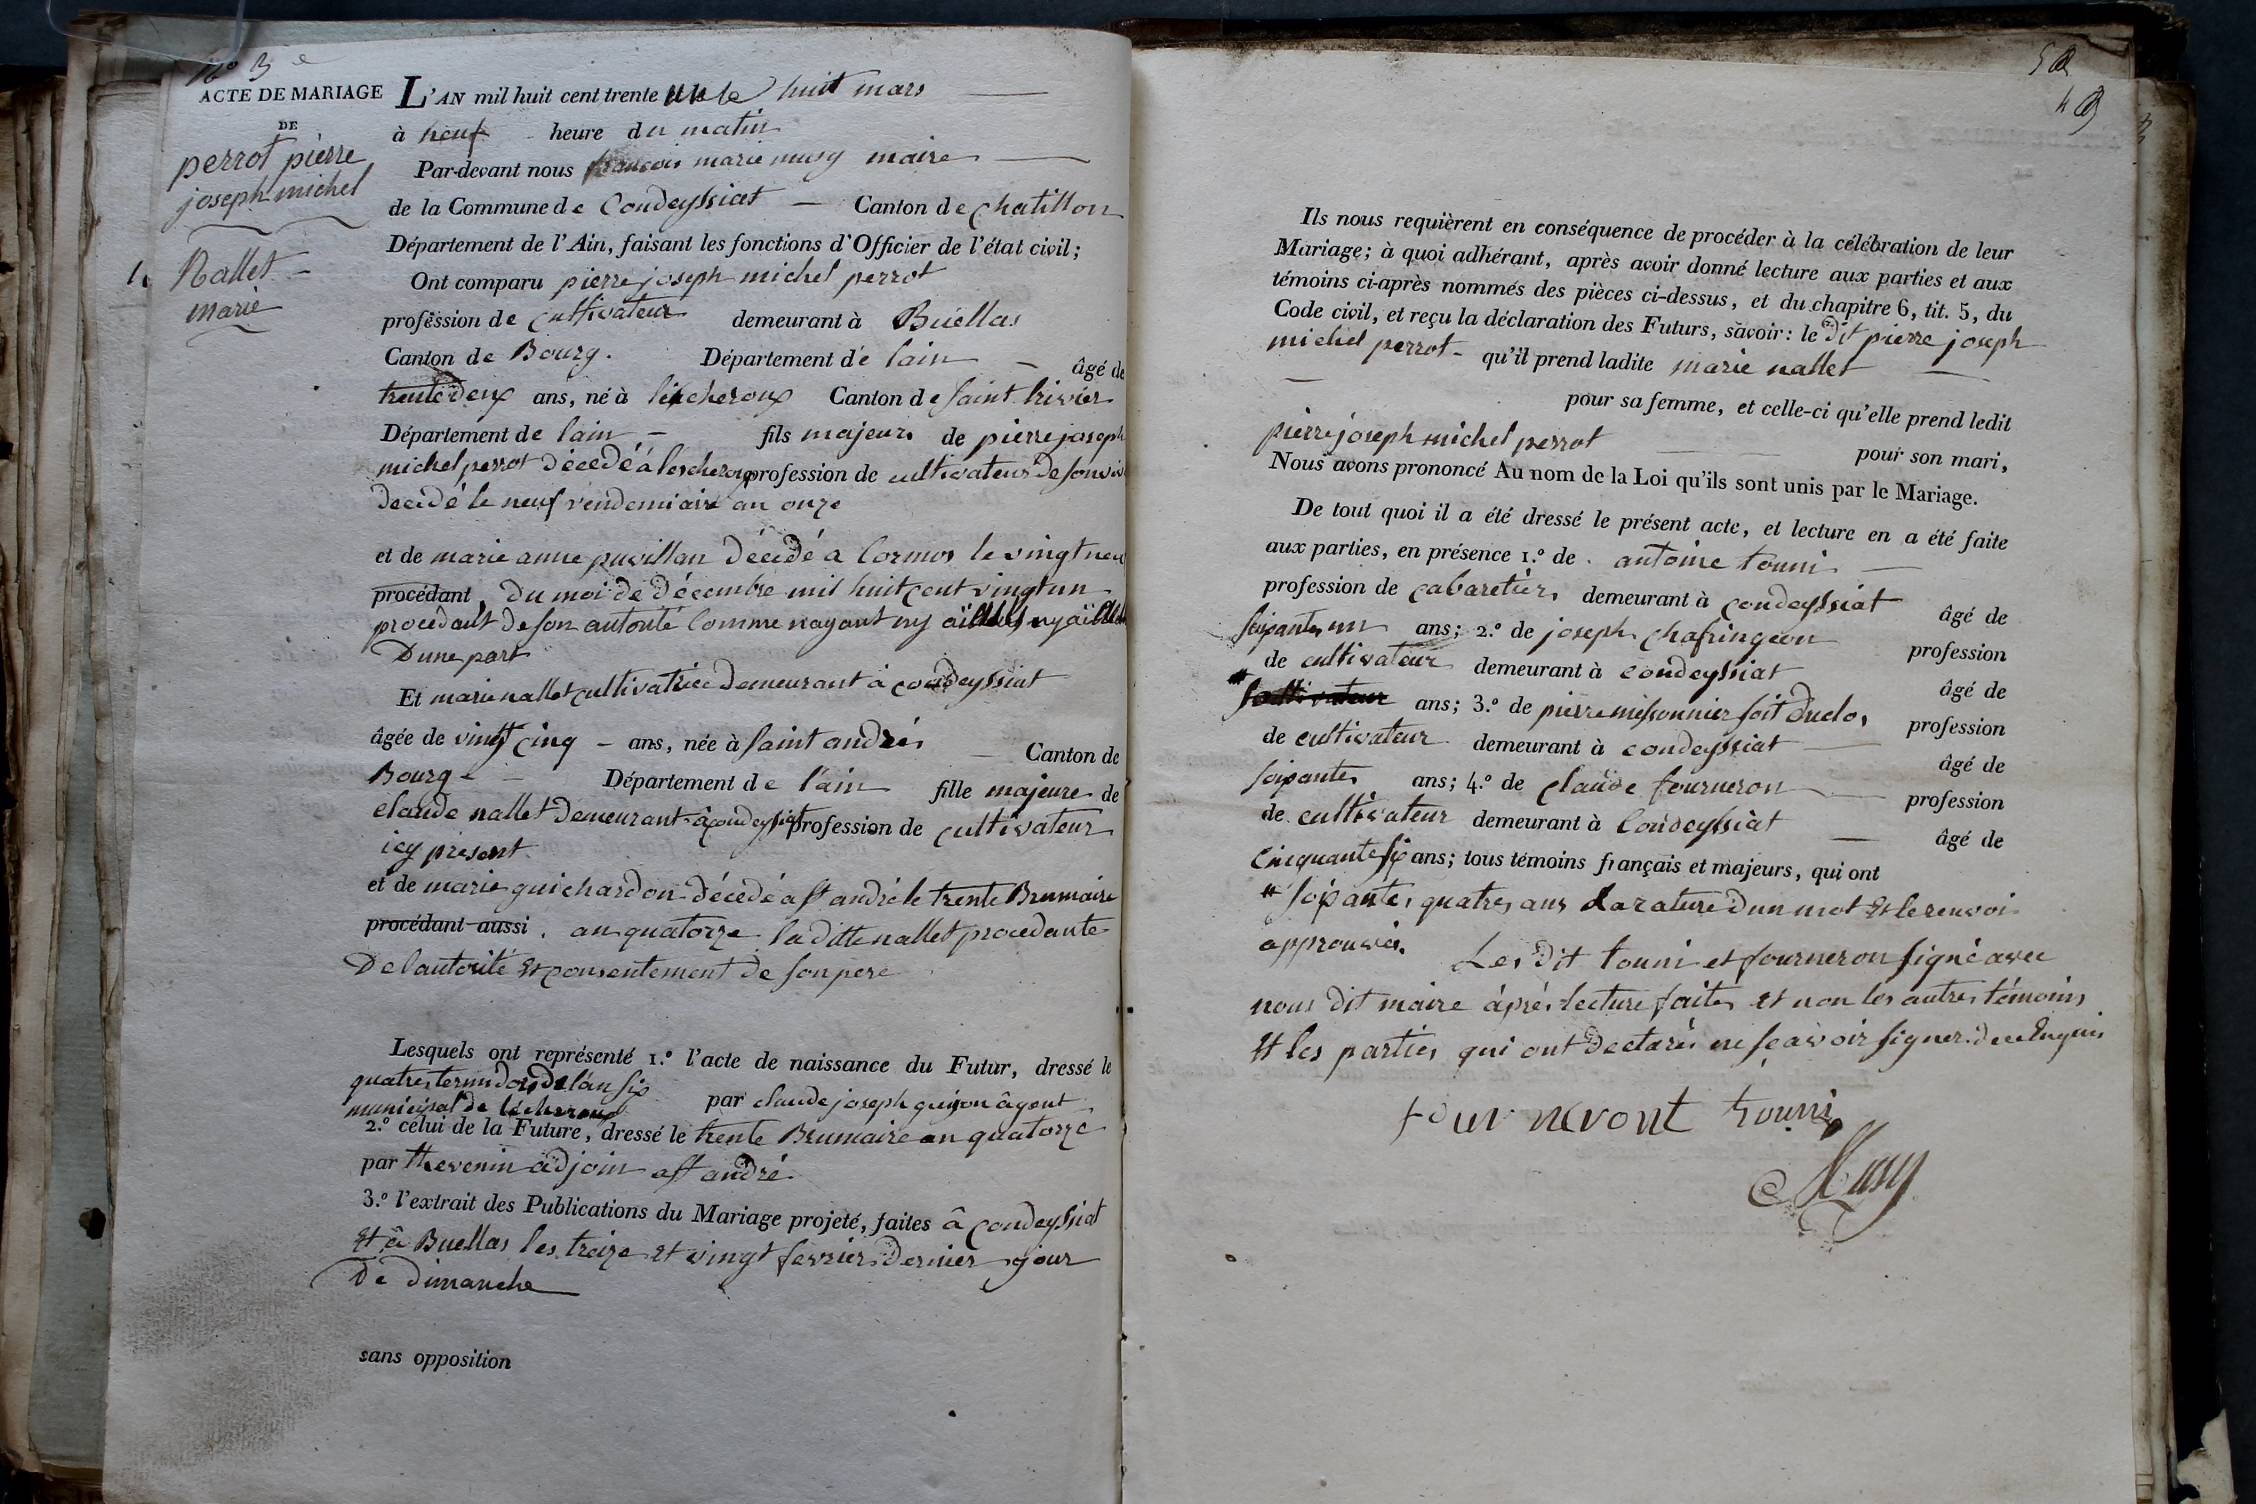 N.o 3.e
ACTE DE MARIAGE
DE
perrot pierre
joseph michel
1.
Nallet
marie
L'AN mil huit cent trente un le huit mars
à neuf heure du matin
Par-devant nous françois marie musy maire
de la Commune de Condeyssiat Canton de chatillon
Département de l'Ain, faisant les fonctions d'Officier de l'état civil;
Ont comparu pierre joseph michel perrot
profession de cultivateur demeurant à Buellas
Canton de Bourg. Département de lain âgé de
trente deux ans, né à lescheroux Canton de saint trivier
Département de lain fils majeur de pierre joseph
michel perrot décédé à lescheroux profession de cultivateur de son viv
décédé le neuf vendemiaire an onze
et de marie anne puvillan décédé a Cormos le vingt neu
procédant du moi de décembre mil huit cent vingt un
procedant de son autorité comme nayant ny aïeulles ny aïeulles
D'une part
Et marie nallet cultivatrice demeurant à condeyssiat
âgée de vingt cinq ans, née à saint andré Canton de
Bourg Département de l'ain fille majeure de
claude nallet demeurant à condeyssiat profession de cultivateur
icy présent
et de marie guichardon décédé a st andré le trente Brumaire
procédant aussi. an quatorze la ditte nallet procedante
De l'autorité et consentement de son pere
Lesquels ont représenté 1.º l'acte de naissance du Futur, dressé le
quatre termidor de l'an six par claude joseph guijon âgent
municipal de lécheroux
2.º celui de la Future, dressé le trente Brumaire an quatorze
par thevenin adjoin a st andré
3.º l'extrait des Publications du Mariage projeté, faites â condeyssiat
et â Buellas les treize et vingt fevrier dernier jour
De dimanche
sans opposition
Ils nous requièrent en conséquence de procéder à la célébration de leur
Mariage; à quoi adhérant, après avoir donné lecture aux parties et aux
témoins ci-après nommés des pièces ci-dessus, et du chapitre 6, tit. 5, du
Code civil, et reçu la déclaration des Futurs, savoir: le dit pierre joseph
michel perrot qu'il prend ladite marie nallet
pour sa femme, et celle-ci qu'elle prend ledit
pierre joseph michel perrot pour son mari,
Nous avons prononcé Au nom de la Loi qu'ils sont unis par le Mariage.
De tout quoi il a été dressé le présent acte, et lecture en a été faite
aux parties, en présence 1.º de antoine touni
profession de cabaretier demeurant à condeyssiat âgé de
soixante un ans; 2.º de joseph chafringeon profession
de cultivateur demeurant à condeyssiat âgé de
cultivateur ans; 3.º de pierre missonnier soit duclos profession
de cultivateur demeurant à condeyssiat âgé de
soixante ans; 4.º de claude fourneron profession
de cultivateur demeurant à Condeyssiat âgé de
cinquante six ans; tous témoins français et majeurs, qui ont
# soixante quatre ans la rature d'un mot et le renvoi
approuvés. Les dit touni et fourneron signé avec
nous dit maire âprés lecture faite et non les autres témoins
et les parties qui ont declarés ne scavoir signer de ce Enquis
fourneront touni
Musy